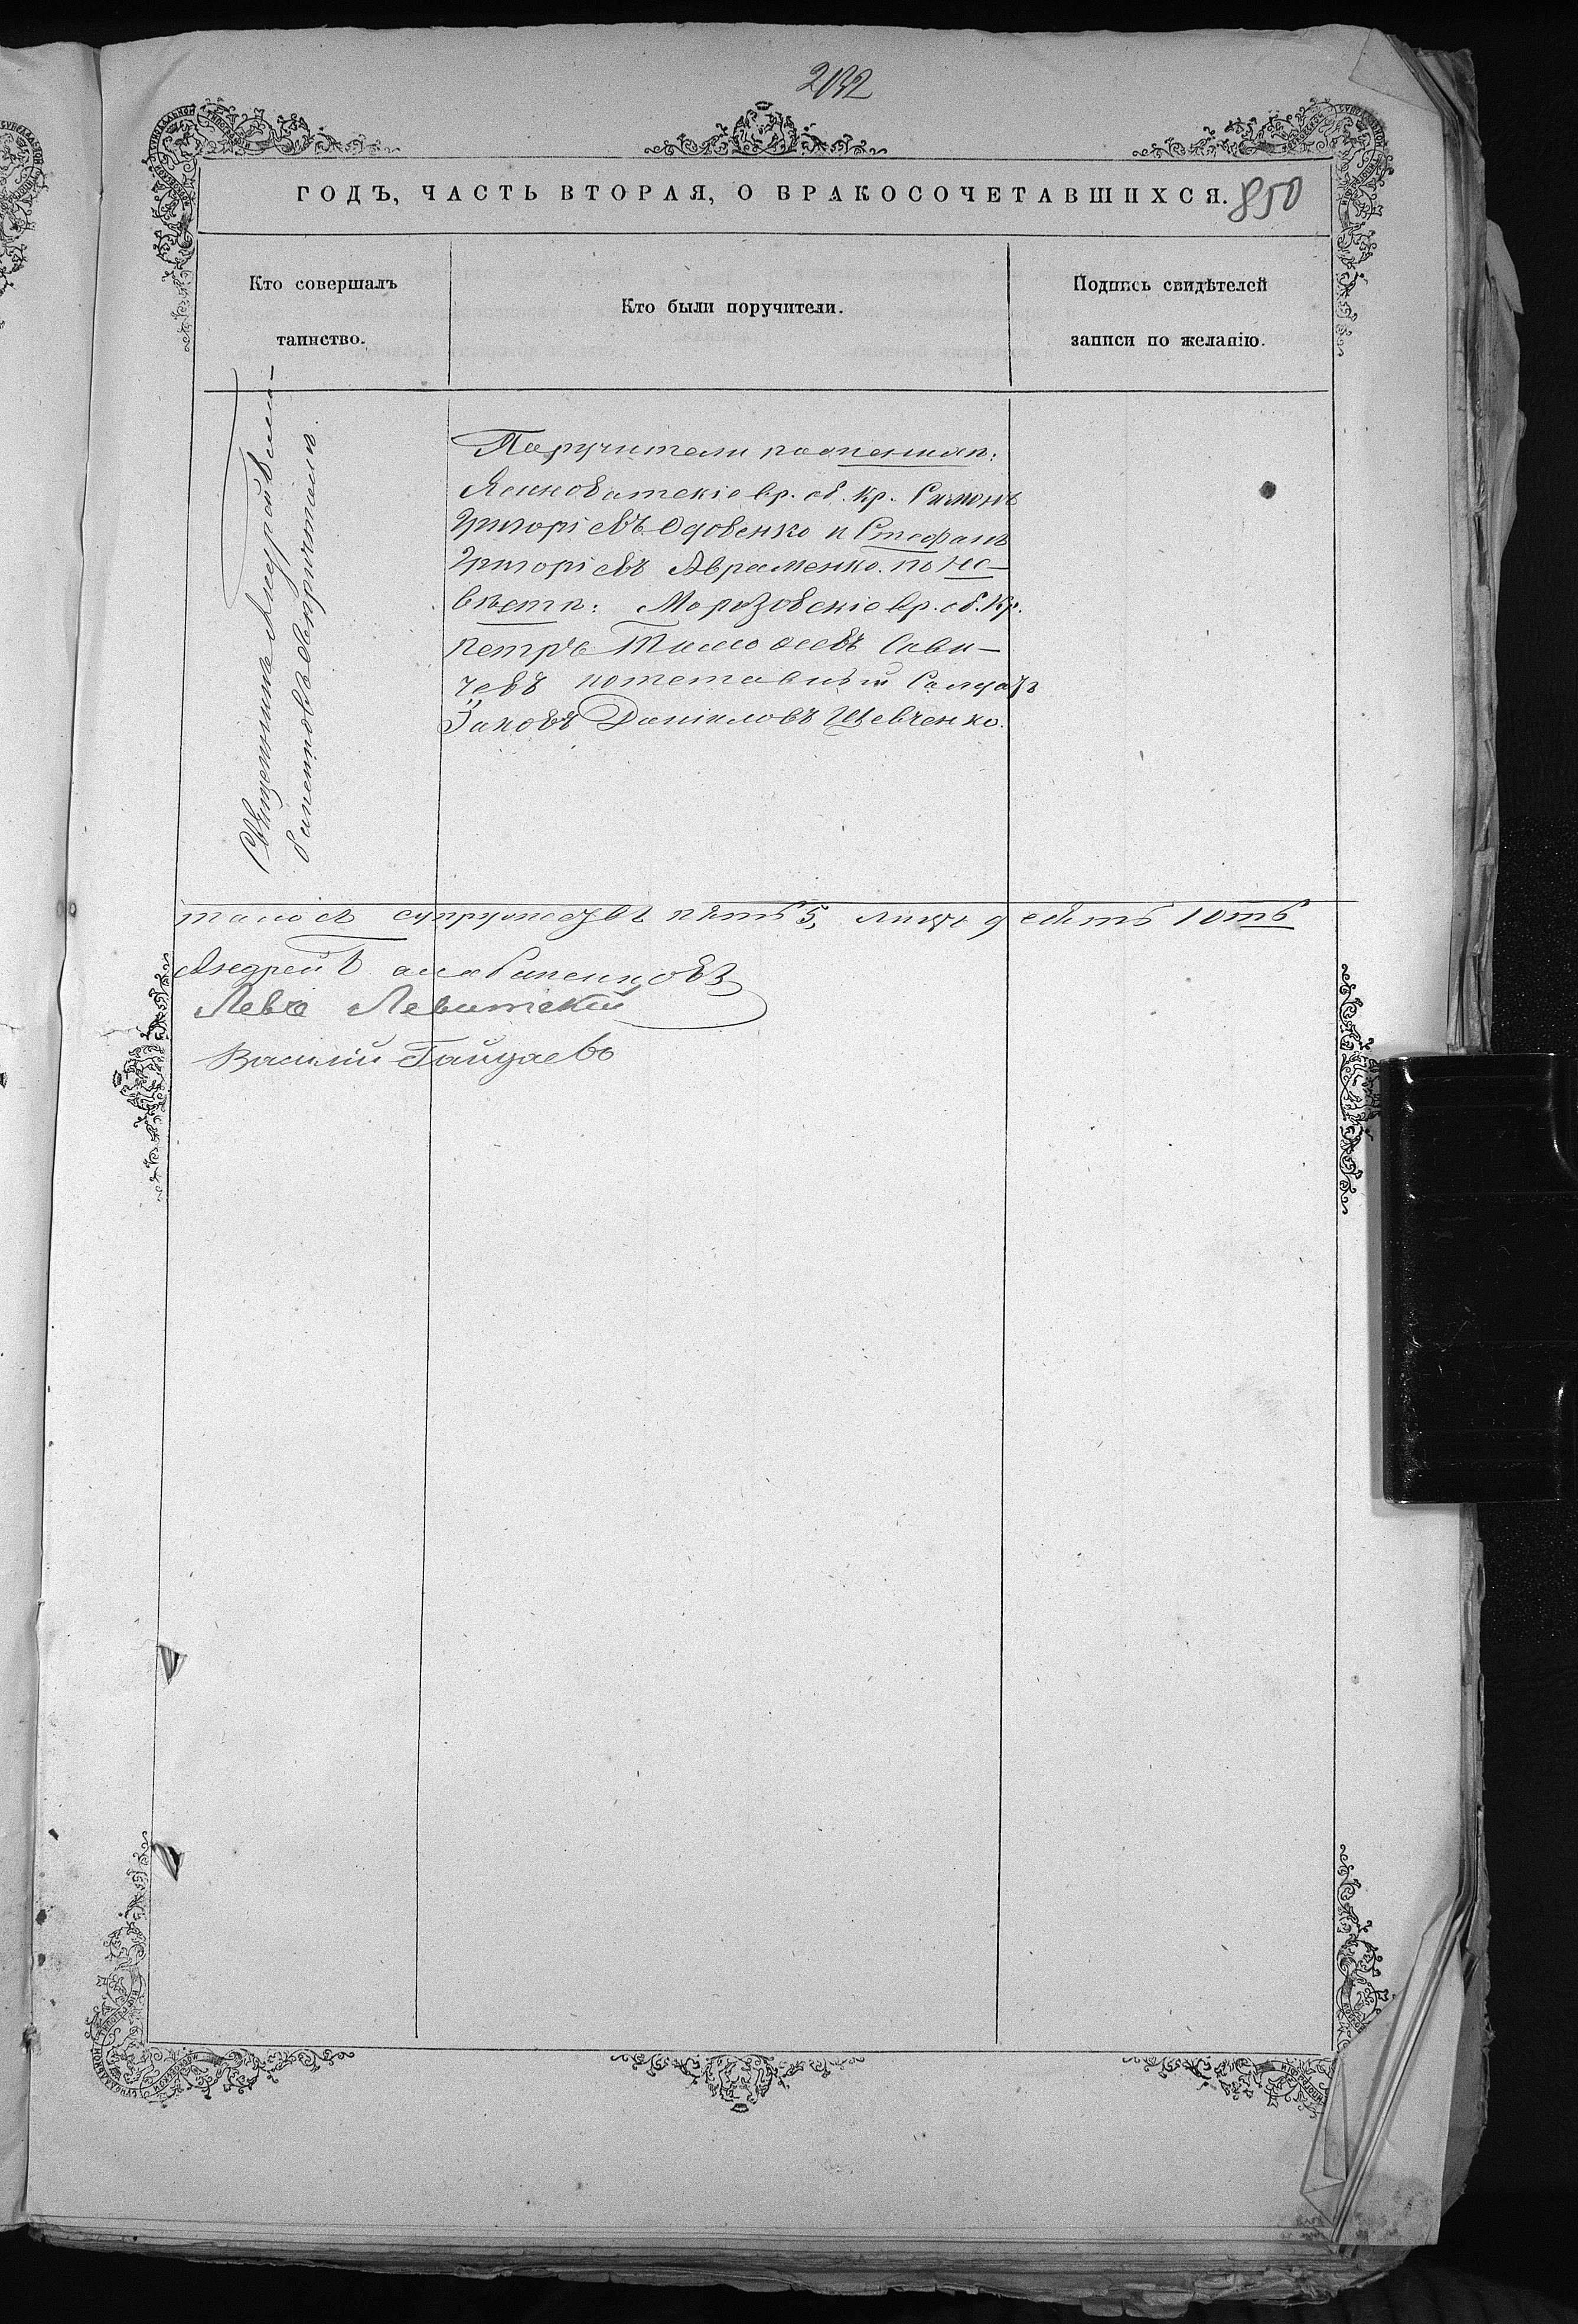 850
ГОДЪ, ЧАСТЬ ВТОРАЯ, О БРАКОСОЧЕТАВШИХСЯ.
Кто совершалъ
таинство.
Кто были поручители.
Подпись свидѣтелей
записи по желанію.
Священникъ Андрей
Поручители по женихѣ:
Ясиноватскіе вр. об. Кр. Симонъ
Григорієвъ Одовенко и Стефанъ
Григорієвъ Авраменко. по не-
вѣстѣ: Морозовскіе вр. об. Кр.
Петръ Тимоѳеевъ Сави-
чевъ и отставный Солдатъ
Іаковъ Даніиловъ Шевченко.
супружествъ пять 5, лицъ десять 10ть
Андрей
Левъ Левитскій
Василій Гайдаевъ